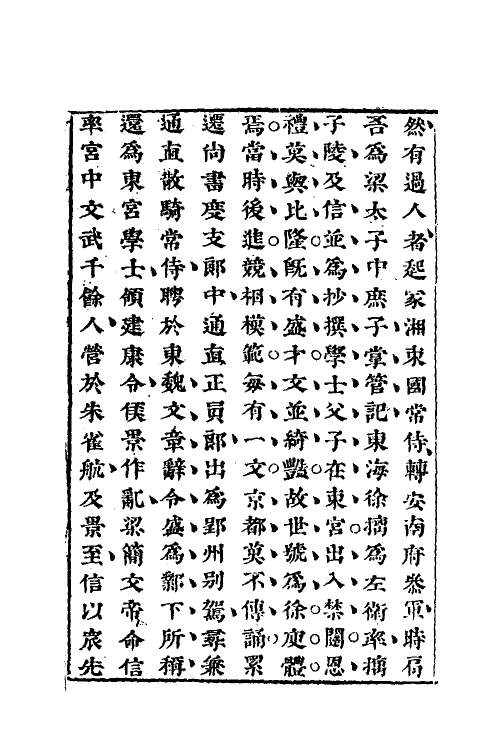 然有過人者起家湘東國常侍轉安南府參軍時肩
吾為梁太子中庶子掌管記東海徐摛為左衛率摛
子陵及信並為抄撰學士父子在東宮出入禁闥恩
禮莫與比隆既有盛才文並綺豔故世號為徐庾體
焉當時後進競相模範每有一文京都莫不傳誦累
遷尚書度支郎中通直正員郎出為郢州別駕尋兼
通直散騎常侍聘於東魏文章辭令盛為鄴下所稱
還為東宮學士領建康令侯景作亂梁簡文帝命信
率宮中文武千餘人營於朱雀航及景至信以衆先